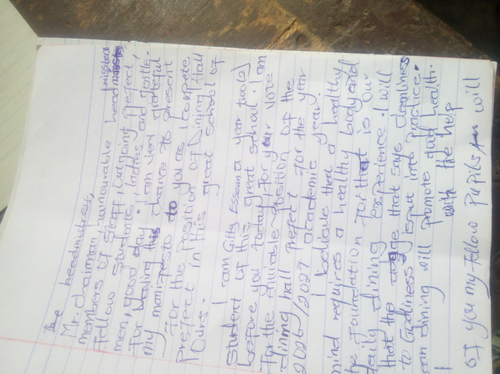 The headmaster,
Mr. chairman, honourable head mistress
members of staff, outgoing prefect,
Fellow students, ladies and gentle
men, good day. I am very grateful
For having this chance to present
my manifesto to you as
For the position of Dining Hall
prefect in this great school of
Ours.
I am Gifty a year two (2)
student of this great school. I am
before you today for your vote
For the position of the
dining hall prefect for the year
2026/2027 academic year.
I believe that a healthy
mind requires a healthy body and
the Foundation for that is our
daily dining experience. I will
that the adage that says cleanliness
to Godliness is put into practice.
ean dining will promote good health.
with the help
of you my fellow pupils will